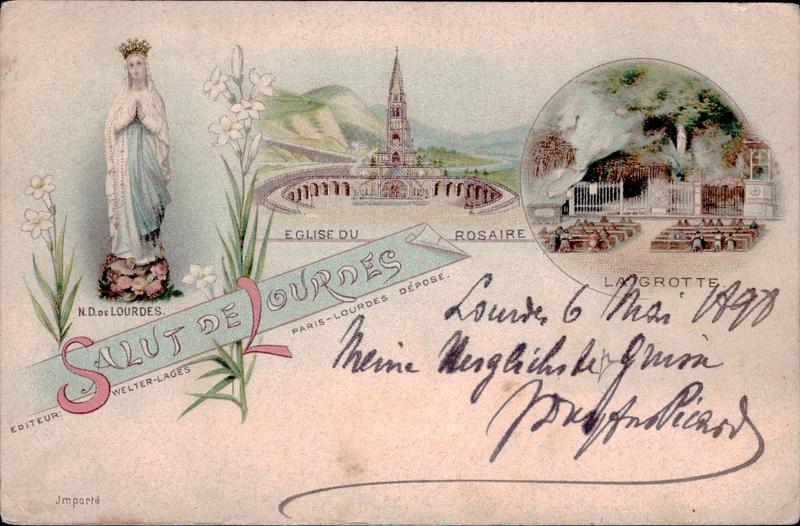 N.D. DE LOURDES.
EGLISE DU ROSAIRE
LA GROTTE
SALUT DE LOURDES
EDITEUR: WELTER-LAGES PARIS-LOURDES DÉPOSÉ.
Lourdes 6 Mai 1898
Meine Herzlichste
Picard
Importé